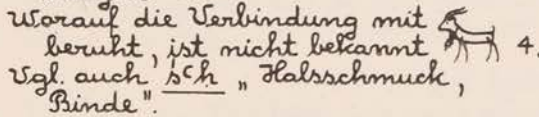 Worauf die Verbindung mit 4.
beruht, ist nicht bekannt
Vgl. auch sꜥḥ „Halsschmuck,
Binde".